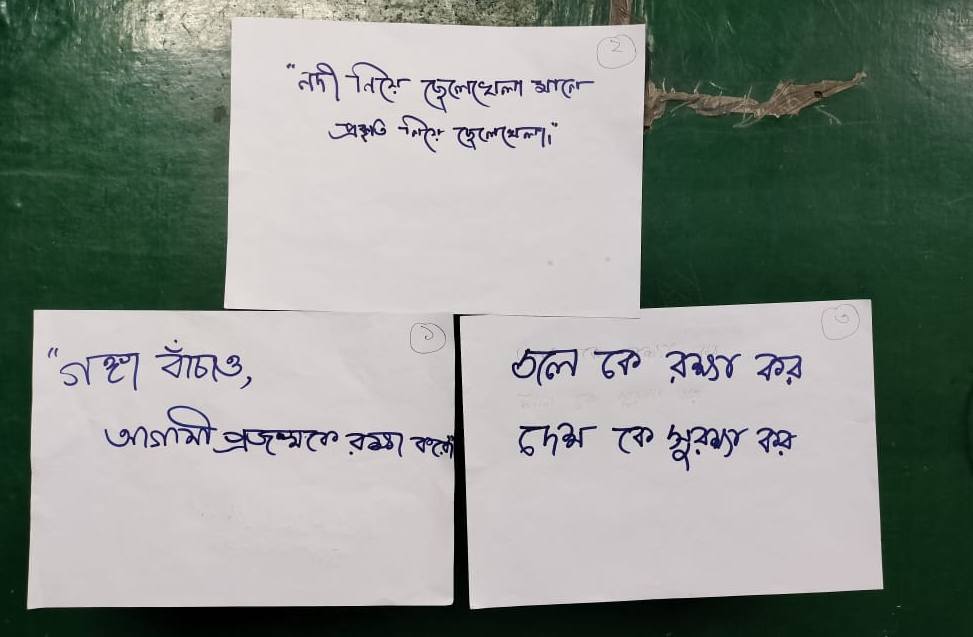 ২
"নদী নিয়ে ছেলেখেলা মানে
প্রকৃতি নিয়ে ছেলেখেলা।"
১
"গঙ্গা বাঁচাও,
আগামী প্রজন্মকে রক্ষা করো
৩
জল কে রক্ষা কর
দেশ কে সুরক্ষা কর